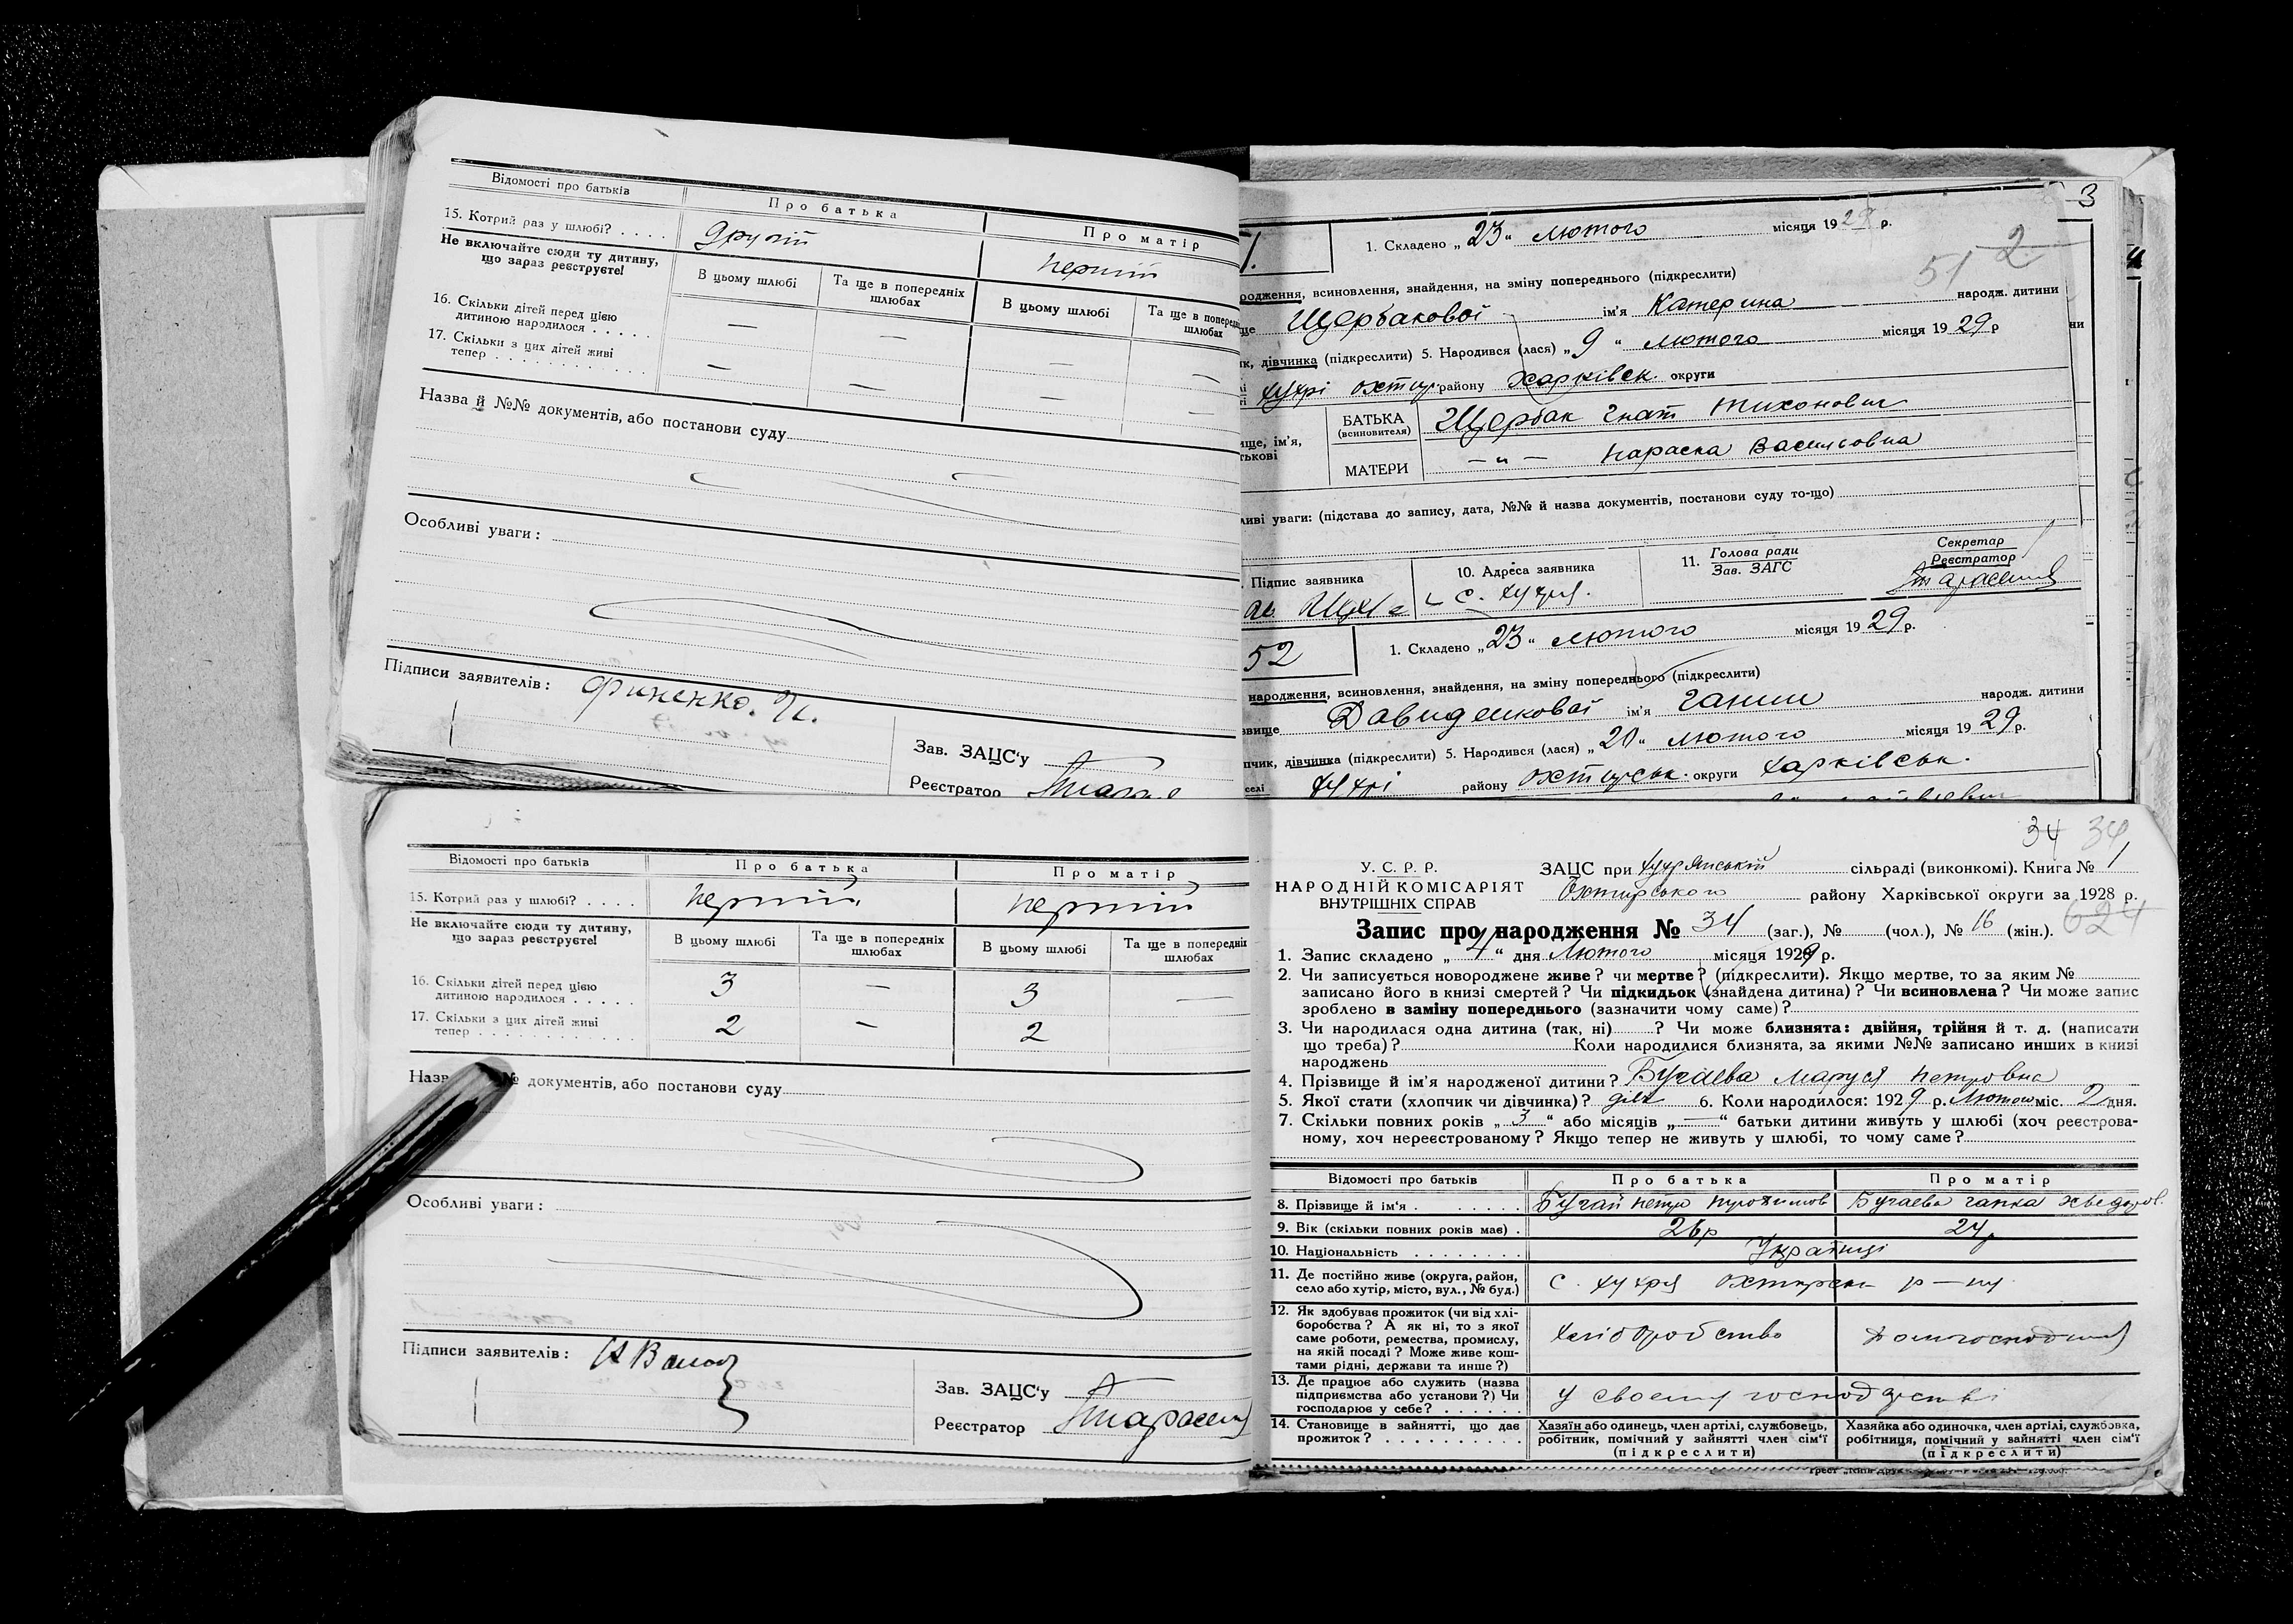 Відомості про батьків
Про батька
Про матір
15. Котрий раз у шлюбі? . . . .
другий
перший
Не включайте сюди ту дитину,
що зараз реєструєте!
В цьому шлюбі
Та ще в попередніх
шлюбах
В цьому шлюбі
Та ще в
шлюбах
16. Скільки дітей перед цією
дитиною народилося . . . . .
— — — —
17. Скільки з цих дітей живі
тепер . . . . . . . . . . . .
— — — —
Назва й №№ документів, або постанови суду
Особливі уваги:
Підписи заявителів: Финенко. И.
Зав. ЗАЦС'у
Реєстратор
3
1. Складено „23“ лютого місяця 1929 р.
51 2
всиновлення, знайдення, на зміну попереднього (підкреслити)
Щербакової ім'я Катерина народж. дитини
дівчинка (підкреслити) 5. Народився (лася) „9“ лютого місяця 1929 р
хухрі охтир району Харківськ. округи
БАТЬКА
(всиновителя)
Щербак Гнат Тихонович
МАТЕРИ
—„— Параска Васильовна
уваги: (підстава до запису, дата, №№ й назва документів, постанови суду то-що)
Підпис заявника
10. Адреса заявника
с. хухря.
11. Голова ради
Зав. ЗАГС
Секретар
Реєстратор
52
1. Складено „23“ лютого місяця 1929 р.
народження, всиновлення, знайдення, на зміну попереднього (підкреслити)
Давиденкової ім'я Ганни народж. дитини
дівчинка (підкреслити) 5. Народився (лася) „20“ лютого місяця 1929 р.
селі хухрі району охтирськ. округи харківськ.
Відомості про батьків
Про батька
Про матір
15. Котрий раз у шлюбі? . . . .
перший
перший
Не включайте сюди ту дитину,
що зараз реєструєте!
В цьому шлюбі
Та ще в попередніх
шлюбах
В цьому шлюбі
Та ще в попередніх
шлюбах
16. Скільки дітей перед цією
дитиною народилося . . . . .
3 — 3 —
17. Скільки з цих дітей живі
тепер . . . . . . . . . . . .
2 — 2
документів, або постанови суду
Особливі уваги:
Підписи заявителів:
Зав. ЗАЦС'у
Реєстратор
34 34
У. С. Р. Р.
НАРОДНІЙ КОМІСАРІЯТ
ВНУТРІШНІХ СПРАВ
ЗАЦС при хухрянській сільраді (виконкомі). Книга № 1
Охтирського району Харківської округи за 1928 р.
624
Запис про народження № 34 (заг.), № (чол.), № 16 (жін.).
1. Запис складено „4“ дня Лютого місяця 1929 р.
2. Чи записується новороджене живе? чи мертве? (підкреслити). Якщо мертве, то за яким №
записано його в книзі смертей? Чи підкидьок (знайдена дитина)? Чи всиновлена? Чи може запис
зроблено в заміну попереднього (зазначити чому саме)?
3. Чи народилася одна дитина (так, ні) ? Чи може близнята: двійня, трійня й т. д. (написати
що треба)? Коли народилися близнята, за якими №№ записано инших в книзі
народжень
4. Прізвище й ім'я народженої дитини? Бугаєва Маруся Петровна
5. Якої стати (хлопчик чи дівчинка)? дівч 6. Коли народилося: 1929 р. Лютого міс. 2 дня.
7. Скільки повних років „3“ або місяців „—“ батьки дитини живуть у шлюбі (хоч реєстрова-
ному, хоч нереєстрованому? Якщо тепер не живуть у шлюбі, то чому саме?
Відомості про батьків
Про батька
Про матір
8. Прізвище й ім'я . . . . . . .
Бугай Петро
Бугаєва Ганка Хведоров.
9. Вік (скільки повних років має) .
26р
24р
10. Національність . . . . . . . .
Українці
11. Де постійно живе (округа, район,
село або хутір, місто, вул., № буд.)
с. хухря охтирськ р—ну
12. Як здобуває прожиток (чи від хлі-
боробства? А як ні, то з якої
саме роботи, ремества, промислу,
на якій посаді? Може живе кош-
тами рідні, держави та инше?)
хліборобство
13. Де працює або служить (назва
підприємства або установи?) Чи
господарює у себе? . . . . . .
у своєму господарстві
14. Становище в зайнятті, що дає
прожиток? . . . . . . . . . . .
Хазяїн або одинець, член артілі, службовець,
робітник, помічний у зайнятті член сім'ї
(підкреслити)
Хазяйка або одиночка, член артілі, службовка,
робітниця, помічний у зайнятті член сім'ї
(підкреслити)